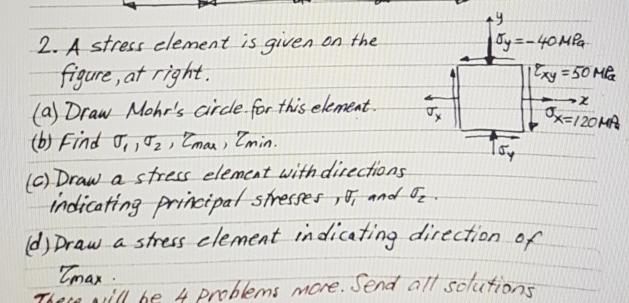 2. A stress element is given on the
figure, at right.
(a) Draw Mohr's circle for this element.
(b) Find σ₁, σ₂, τmax, τmin.
(c) Draw a stress element with directions
indicating principal stresses, σ₁ and σ₂.
(d) Draw a stress element indicating direction of
τmax.
There will be 4 problems more. Send all solutions
y
σy=-40MPa
τxy=50MPa
x
σx
σx=120MPa
σy